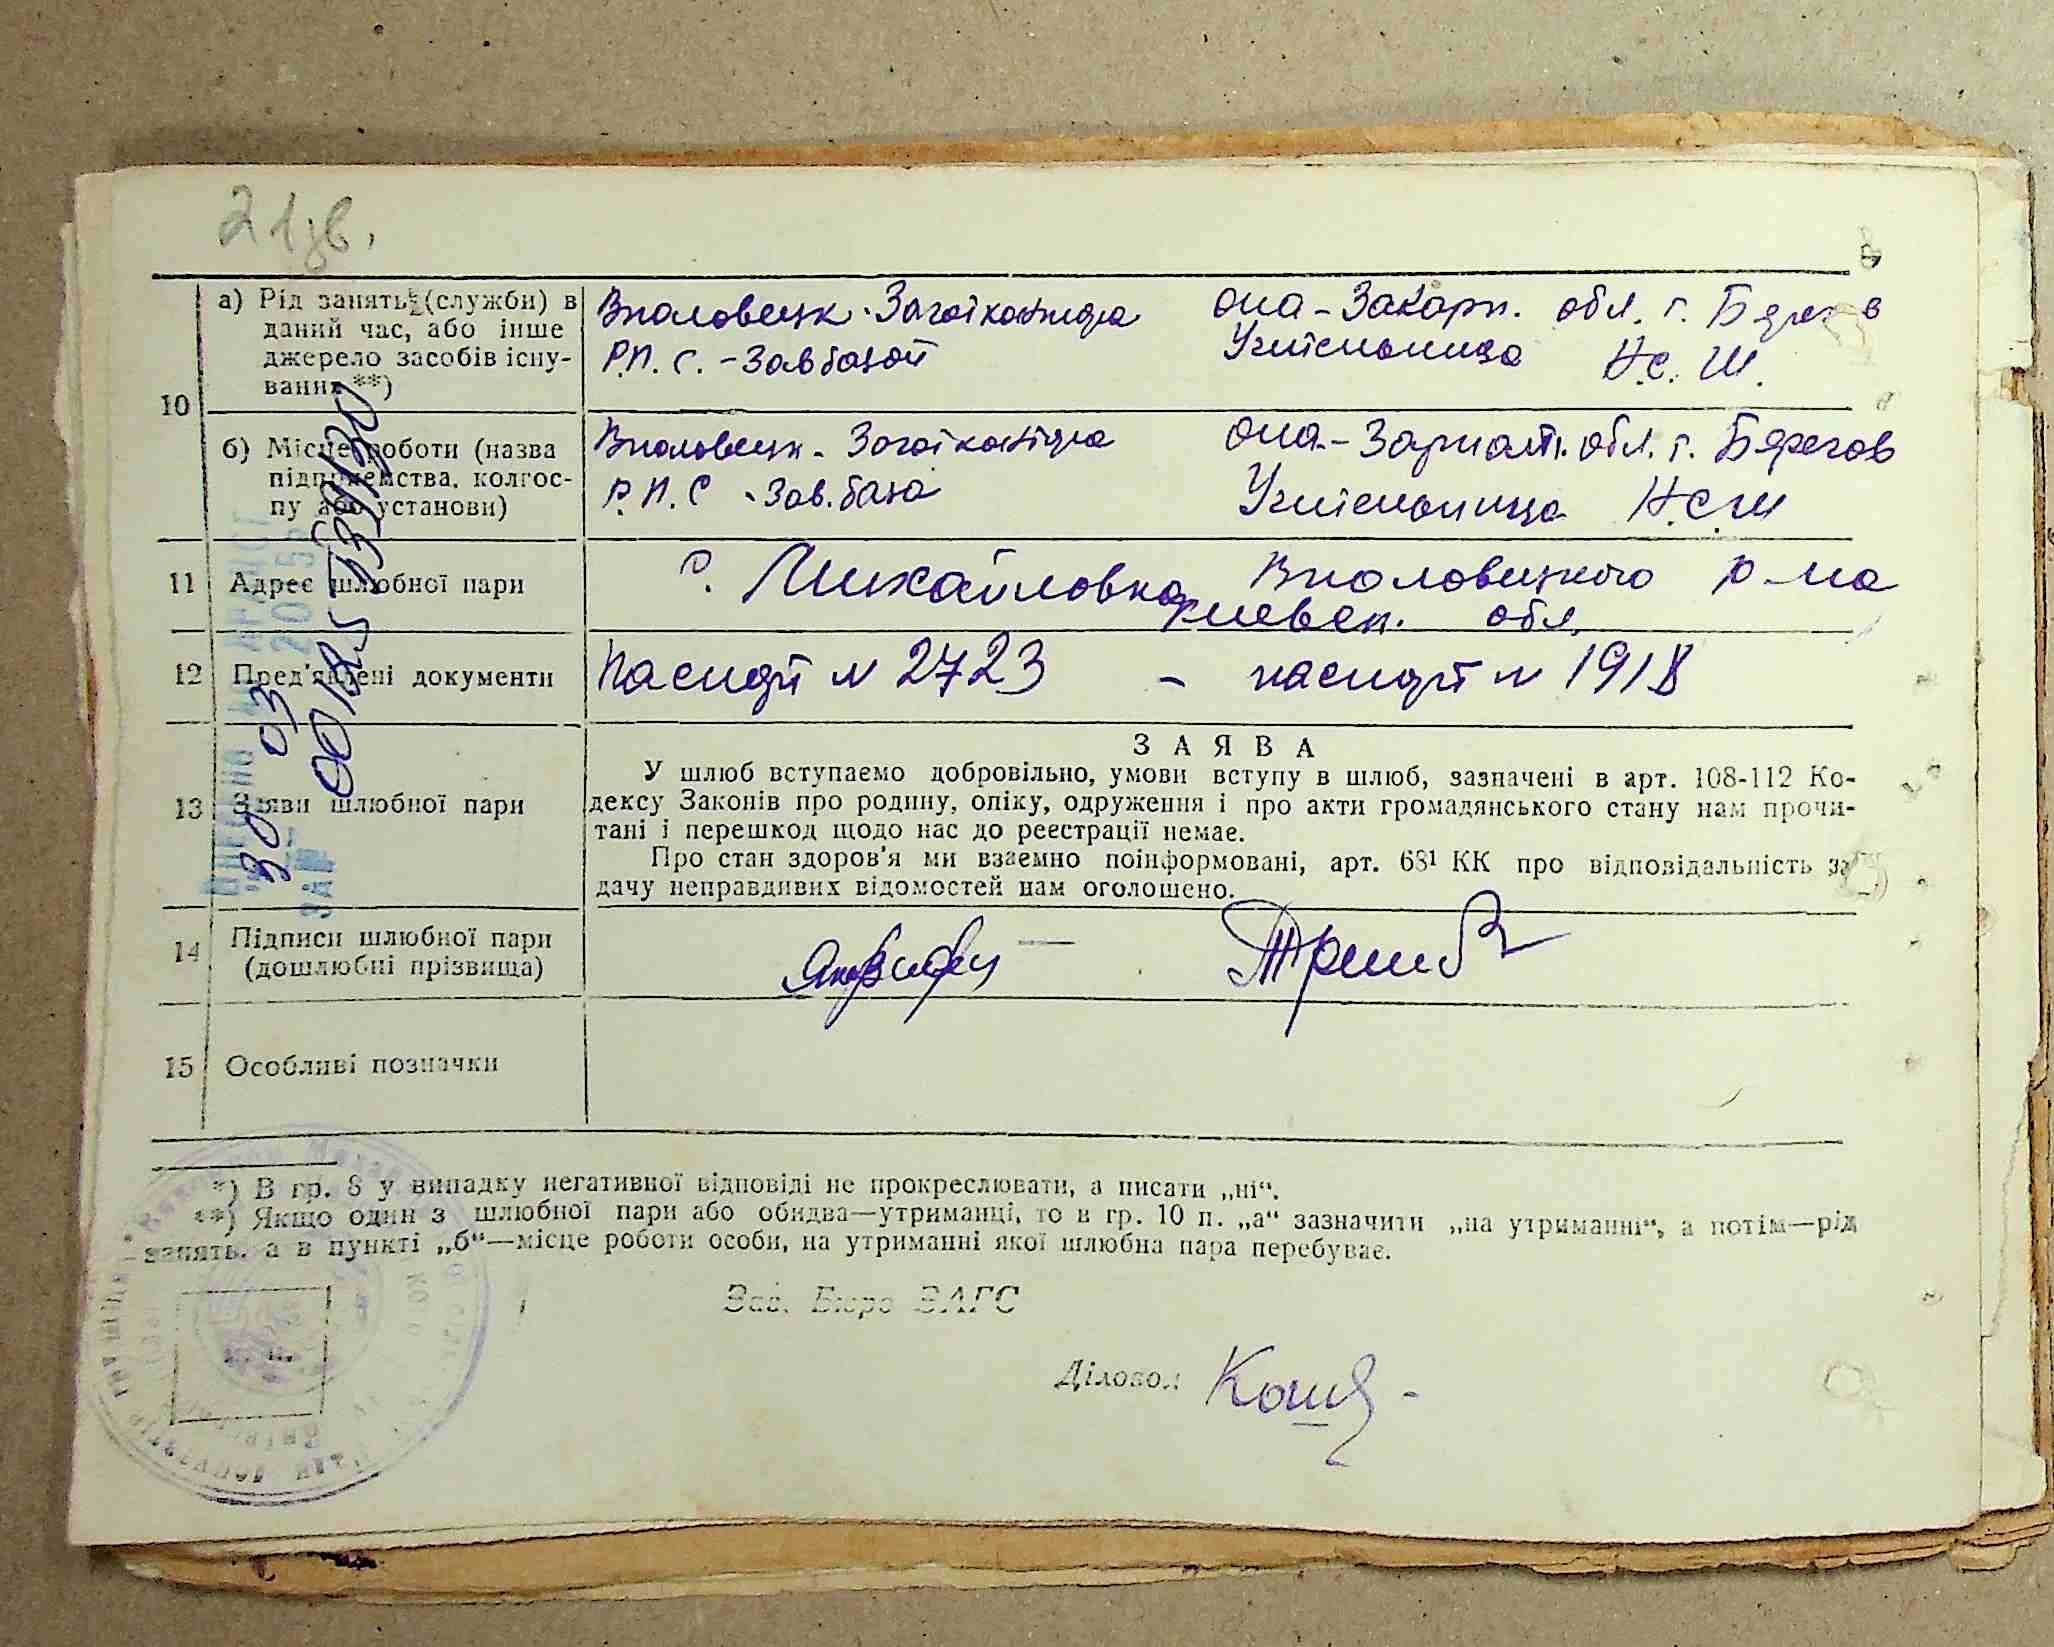 21 зв.
10
а) Рід занять (служби) в
даний час, або інше
джерело засобів існу-
вання **)
Заготконтора
Р.П.С. - Зав базой
она - Закарп. обл. г. Берегов
Учительница Н.С.Ш.
б) Місце роботи (назва
підприємства, колгос-
пу або установи)
Заготконтора
Р.П.С - Зав. база
она - обл. г. Берегов
Учительница Н.С.Ш
11 Адрес шлюбної пари
с. Михайловка р-на
Киевск. обл.
12 Пред'явлені документи
Паспорт № 2723 - паспорт № 1918
13 Заяви шлюбної пари
ЗАЯВА
У шлюб вступаємо добровільно, умови вступу в шлюб, зазначені в арт. 108-112 Ко-
дексу Законів про родину, опіку, одруження і про акти громадянського стану нам прочи-
тані і перешкод щодо нас до реєстрації немає.
Про стан здоров'я ми взаємно поінформовані, арт. 68¹ КК про відповідальність за
дачу неправдивих відомостей нам оголошено.
14 Підписи шлюбної пари
(дошлюбні прізвища)
15 Особливі позначки
*) В гр. 8 у випадку негативної відповіді не прокреслювати, а писати „ні“.
**) Якщо один з шлюбної пари або обидва—утриманці, то в гр. 10 п. „а“ зазначити „на утриманні“, а потім—рід
занять, а в пункті „б“—місце роботи особи, на утриманні якої шлюбна пара перебуває.
Зав. Бюро ЗАГС
Діловод
30 03